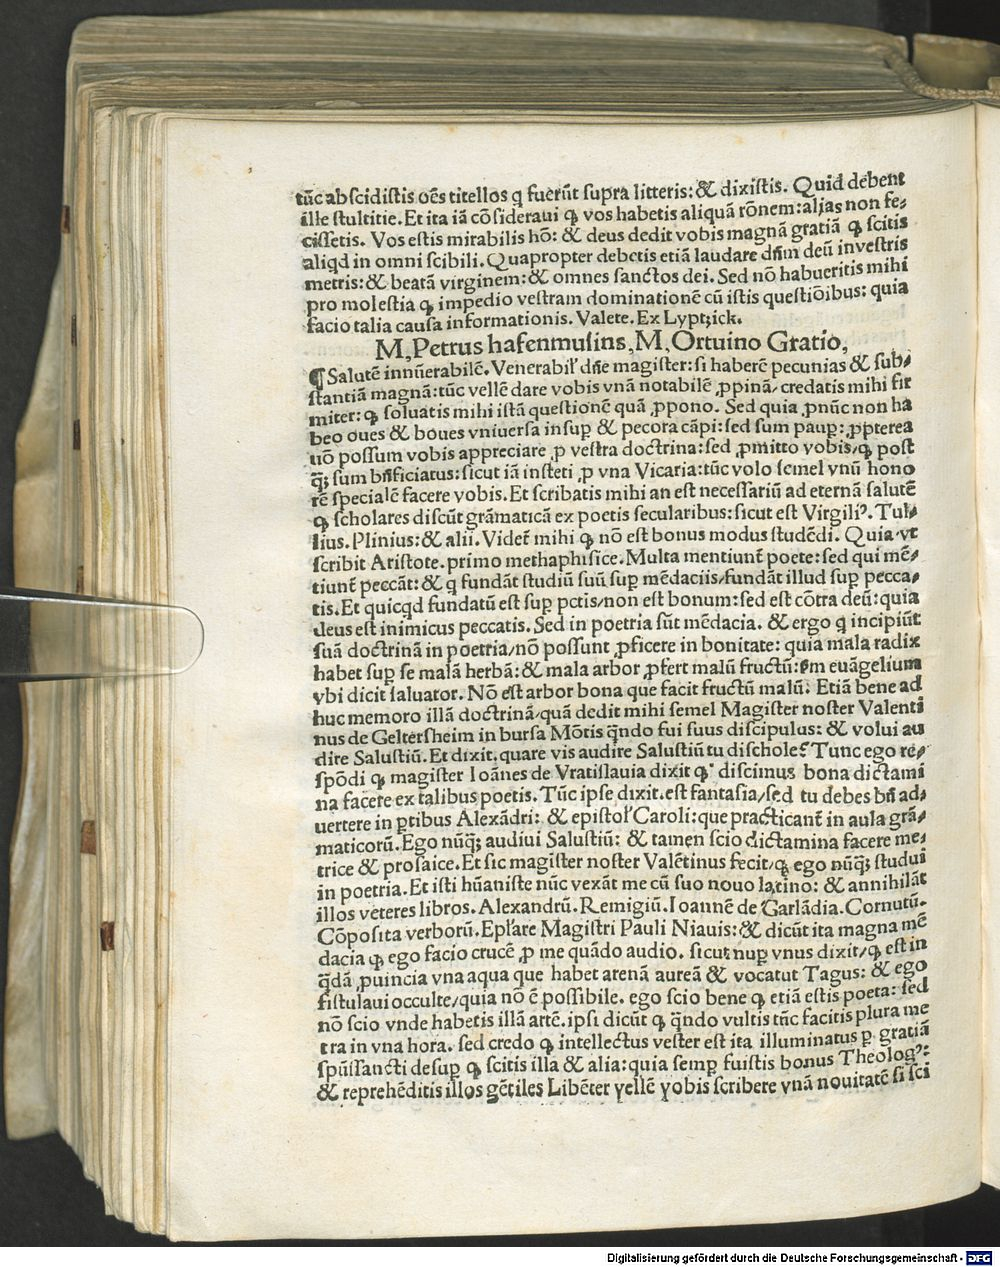 tūc abscidistis oēs titellos q fuerūt supra litteris: & dixistis. Quid debent
ille stultitie. Et ita iā cōsideraui ꝙ vos habetis aliquā rōnem: alias non fe⸗
cissetis. Vos estis mirabilis hō: & deus dedit vobis magnā gratiā ꝙ scitis
aliqd in omni scibili. Quapropter debetis etiā laudare dn̄m deū in vestris
metris: & beatā virginem: & omnes sanctos dei. Sed nō habueritis mihi
pro molestia ꝙ impedio vestram dominationē cū istis questiōibus: quia
facio talia causa informationis. Valete. Ex Lyptzick.
M, Petrus hafenmusius, M, Ortuino Gratio,
¶ Salutē innūerabilē. Venerabil' dn̄e magister: si haberē pecunias & sub⸗
stantiā magnā: tūc vellē dare vobis vnā notabilē ꝓpinā/ credatis mihi fir
miter: ꝙ soluatis mihi istā questionē quā ꝓpono. Sed quia ꝓnūc non ha
beo oues & boues vniuersa insuꝑ & pecora cāpi: sed sum pauꝑ: ꝓpterea
nō possum vobis appreciare ꝓ vestra doctrina: sed ꝓmitto vobis/ ꝙ post
q̄ꝫ sum bn̄ficiatus: sicut iā insteti ꝓ vna Vicaria: tūc volo semel vnū hono
rē specialē facere vobis. Et scribatis mihi an est necessariū ad eternā salutē
ꝙ scholares discūt grāmaticā ex poetis secularibus: sicut est Virgiliꝰ. Tul⸗
lius. Plinius: & alii. Videt̄ mihi ꝙ nō est bonus modus studēdi. Quia/ vt
scribit Aristote. primo methaphisice. Multa mentiunt̄ poete: sed qui mē⸗
tiunt̄ peccāt: & q fundāt studiū suū suꝑ mēdaciis/ fundāt illud suꝑ pecca⸗
tis. Et quicqd fundatū est suꝑ pctis/ non est bonum: sed est cōtra deū: quia
deus est inimicus peccatis. Sed in poetria sūt mēdacia. & ergo q incipiūt
suā doctrinā in poetria/ nō possunt ꝓficere in bonitate: quia mala radix
habet suꝑ se malā herbā: & mala arbor ꝓfert malū fructū: fm euāgelium
vbi dicit saluator. Nō est arbor bona que facit fructū malū. Etiā bene ad
huc memoro illā doctrinā/ quā dedit mihi semel Magister noster Valenti
nus de Geltersheim in bursa Mōtis q̄ndo fui suus discipulus: & volui au
dire Salustiū. Et dixit. quare vis audire Salustiū tu dischole? Tunc ego re⸗
spōdi ꝙ magister Ioānes de Vratislauia dixit ꝙ discimus bona dictami
na facere ex talibus poetis. Tūc ipse dixit. est fantasia/ sed tu debes bn̄ ad⸗
uertere in ꝑtibus Alexādri: & epistol' Caroli: que practicant̄ in aula grā⸗
maticorū. Ego nūq̄ꝫ audiui Salustiū: & tamen scio dictamina facere me⸗
trice & prosaice. Et sic magister noster Valētinus fecit/ ꝙ ego nūq̄ꝫ studui
in poetria. Et isti hūaniste nūc vexāt me cū suo nouo latino: & annihilāt
illos veteres libros. Alexandrū. Remigiū. Ioannē de Garlādia. Cornutū.
Cōposita verborū. Epl'are Magistri Pauli Niauis: & dicūt ita magna mē
dacia ꝙ ego facio crucē ꝓ me quādo audio. sicut nuꝑ vnus dixit/ ꝙ est in
q̄dā ꝓuincia vna aqua que habet arenā aureā & vocatur Tagus: & ego
fistulaui occulte/ quia nō ē possibile. ego scio bene ꝙ etiā estis poeta: sed
nō scio vnde habetis illā artē. ipsi dicūt ꝙ q̄ndo vultis tūc facitis plura me
tra in vna hora. sed credo ꝙ intellectus vester est ita illuminatus ꝑ gratiā
spūssancti desuꝑ ꝙ scitis illa & alia: quia semꝑ fuistis bonus Theologꝰ:
& reprehēditis illos gētiles Libēter vellē vobis scribere vnā nouitatē si sci
Digitalisierung gefördert durch die Deutsche Forschungsgemeinschaft - DFG